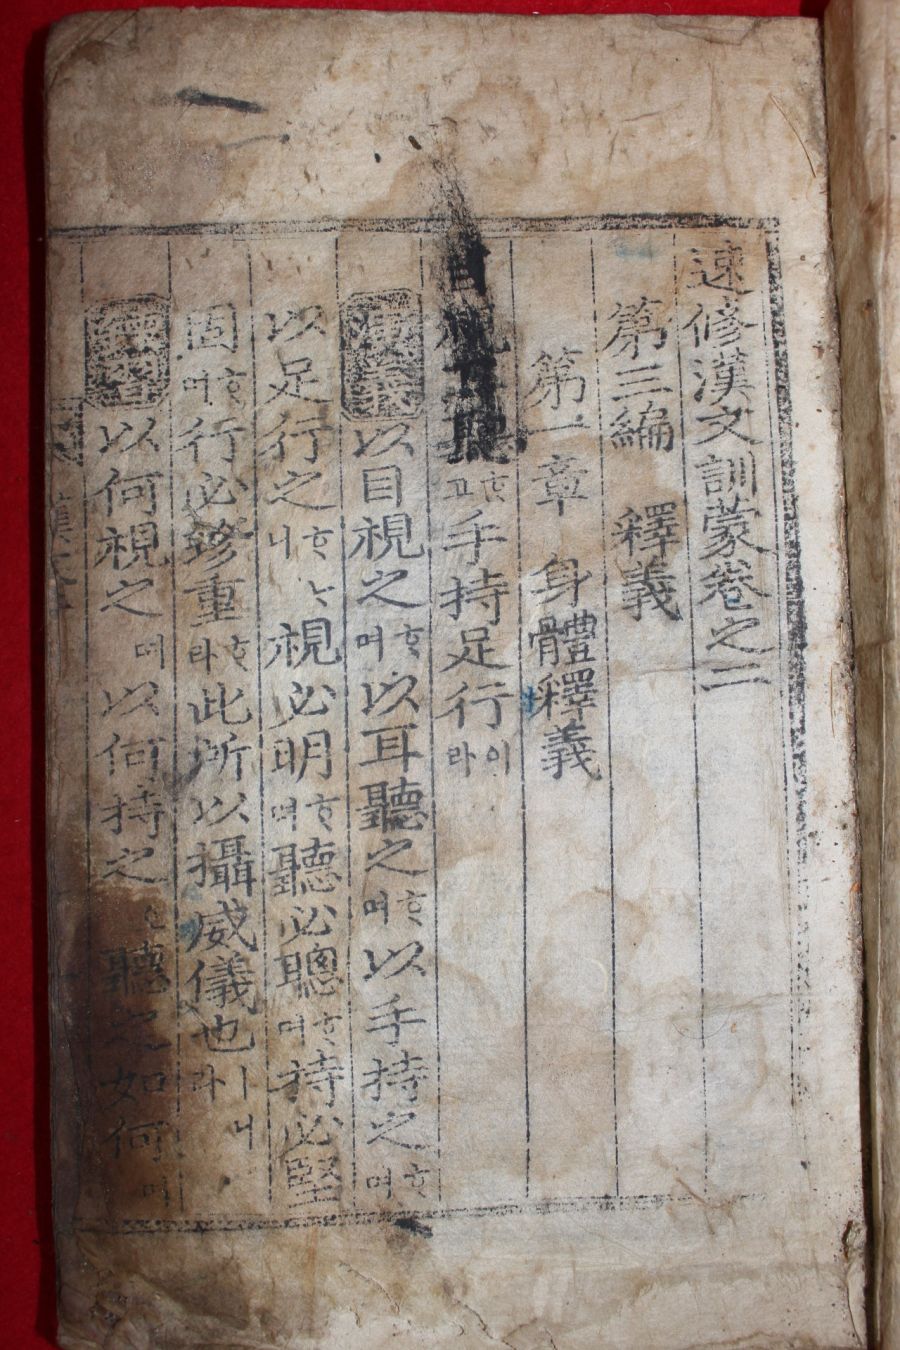 速修漢文訓蒙卷之二
第三編 釋義
第一章 身體釋義
目視耳聽ᄒᆞ고手持足行이라
演義 以目視之ᄒᆞ며以耳聽之ᄒᆞ며以手持之ᄒᆞ며
以足行之ᄒᆞᄂᆞ니視必明ᄒᆞ며聽必聰ᄒᆞ며持必堅
固ᄒᆞ며行必珍重ᄒᆞ라此所以攝威儀也ㅣ니라
練習 以何視之며以何持之聽之如何며